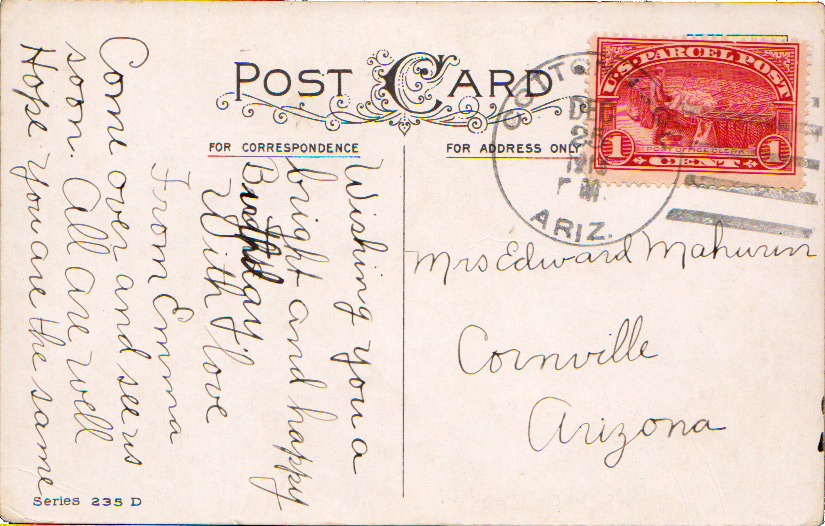 POST CARD
FOR CORRESPONDENCE
FOR ADDRESS ONLY
U.S. PARCEL POST
POST OFFICE CLERK
1 CENT 1
DEC
25
ARIZ.
Mrs Edward Mahurin
Cornville
Arizona
Wishing you a
bright and happy
Birthday.
With love
From Emma
Come over and see us
soon. All are well
Hope you are the same
Series 235 D